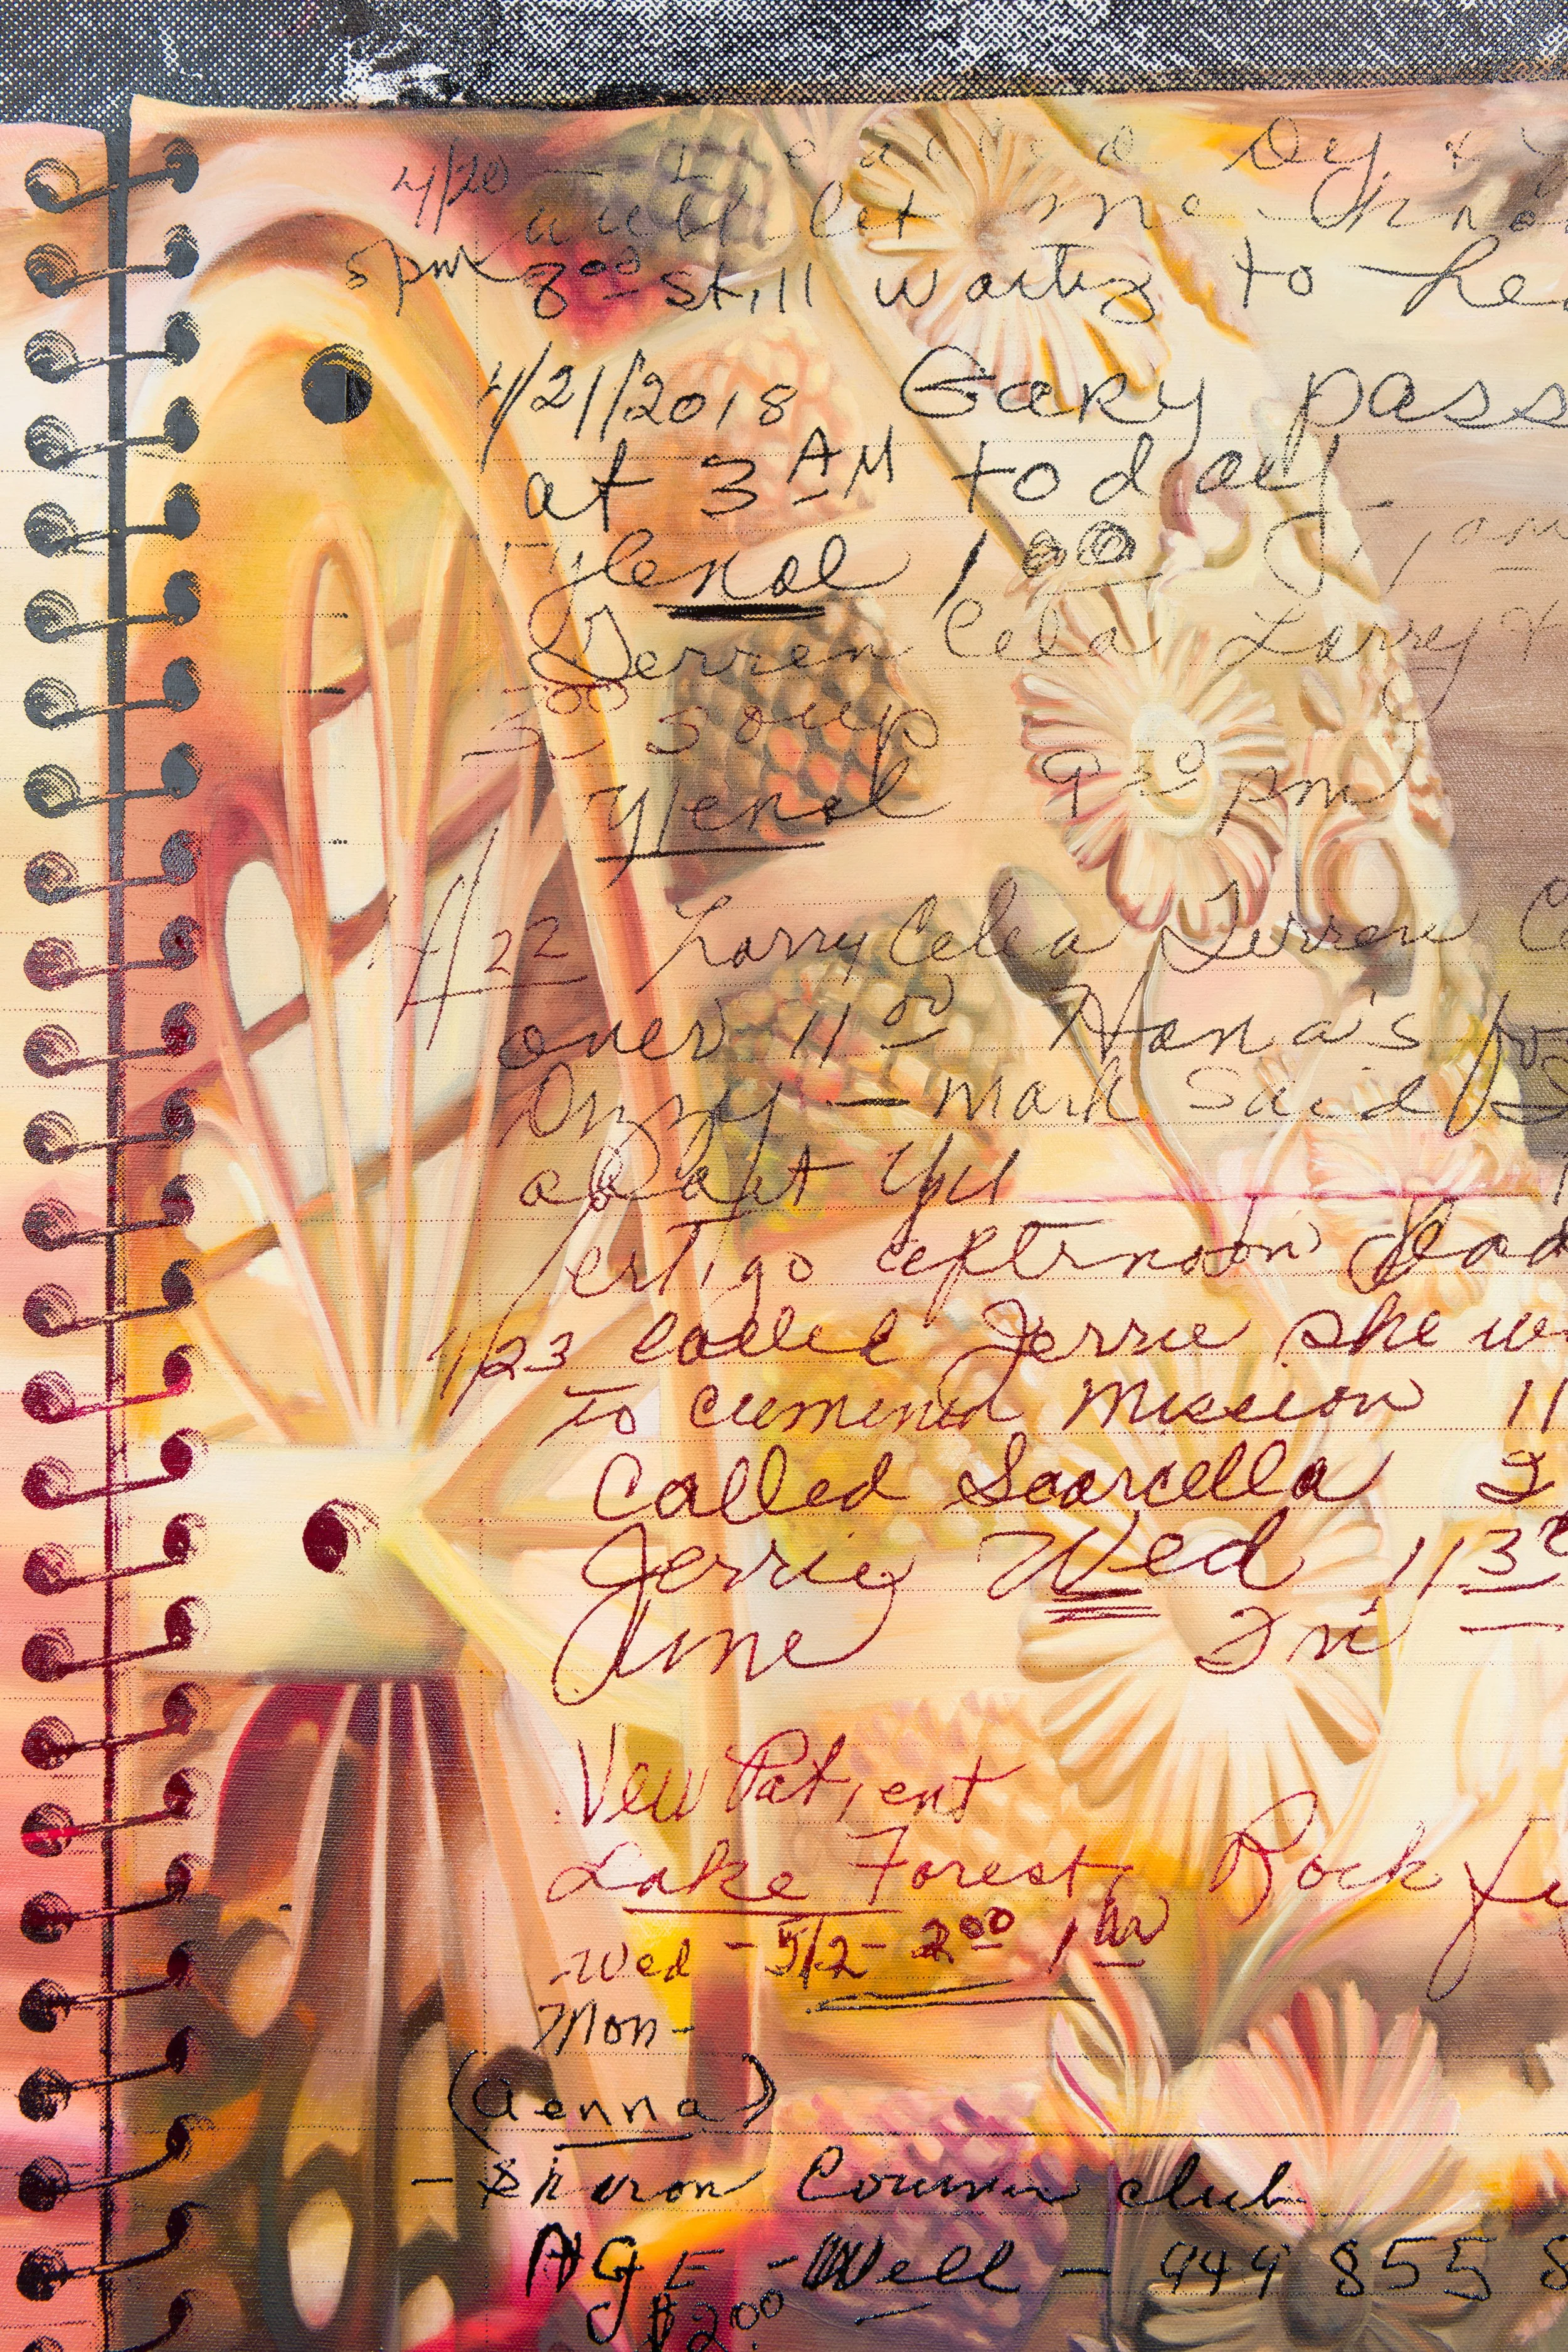 4/20 — I called Dy &
will let me Kno
5pm 8⁰⁰ still waiting to he
4/21/2018 Gary pass
at 3 AM today.
Tylenol 1⁰⁰ am
Derren Cela Larry &
3⁰⁰ soup
Tylenol 9³⁰ pm
4/22 Larry Celea Derren
over 11⁰⁰ Nana's
Ozzy — Mark said
adopt
Vertigo afternoon
4/23 called Jerrie she w
to Mission 11
Called Scarcella 2
Jerrie Wed 11 3
June Fri
New Patient
Lake Forest, Rock
Wed - 5/2 - 2⁰⁰ 1 hr
Mon -
(Aenna)
- Sharon club
AGE - Well - 949 855 8
$2⁰⁰